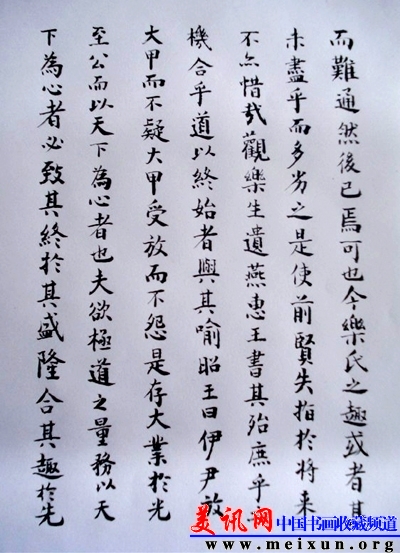 而難通然後已焉可也今樂氏之趣或者其
未盡乎而多劣之是使前賢失指於将来
不亦惜哉觀樂生遺燕惠王書其殆庶乎
機合乎道以終始者與其喻昭王曰伊尹放
大甲而不疑大甲受放而不怨是存大業於光
至公而以天下為心者也夫欲極道之量務以天
下為心者必致其終於其盛隆合其趣於先
美讯网 中国书画收藏频道
www.meixun.org